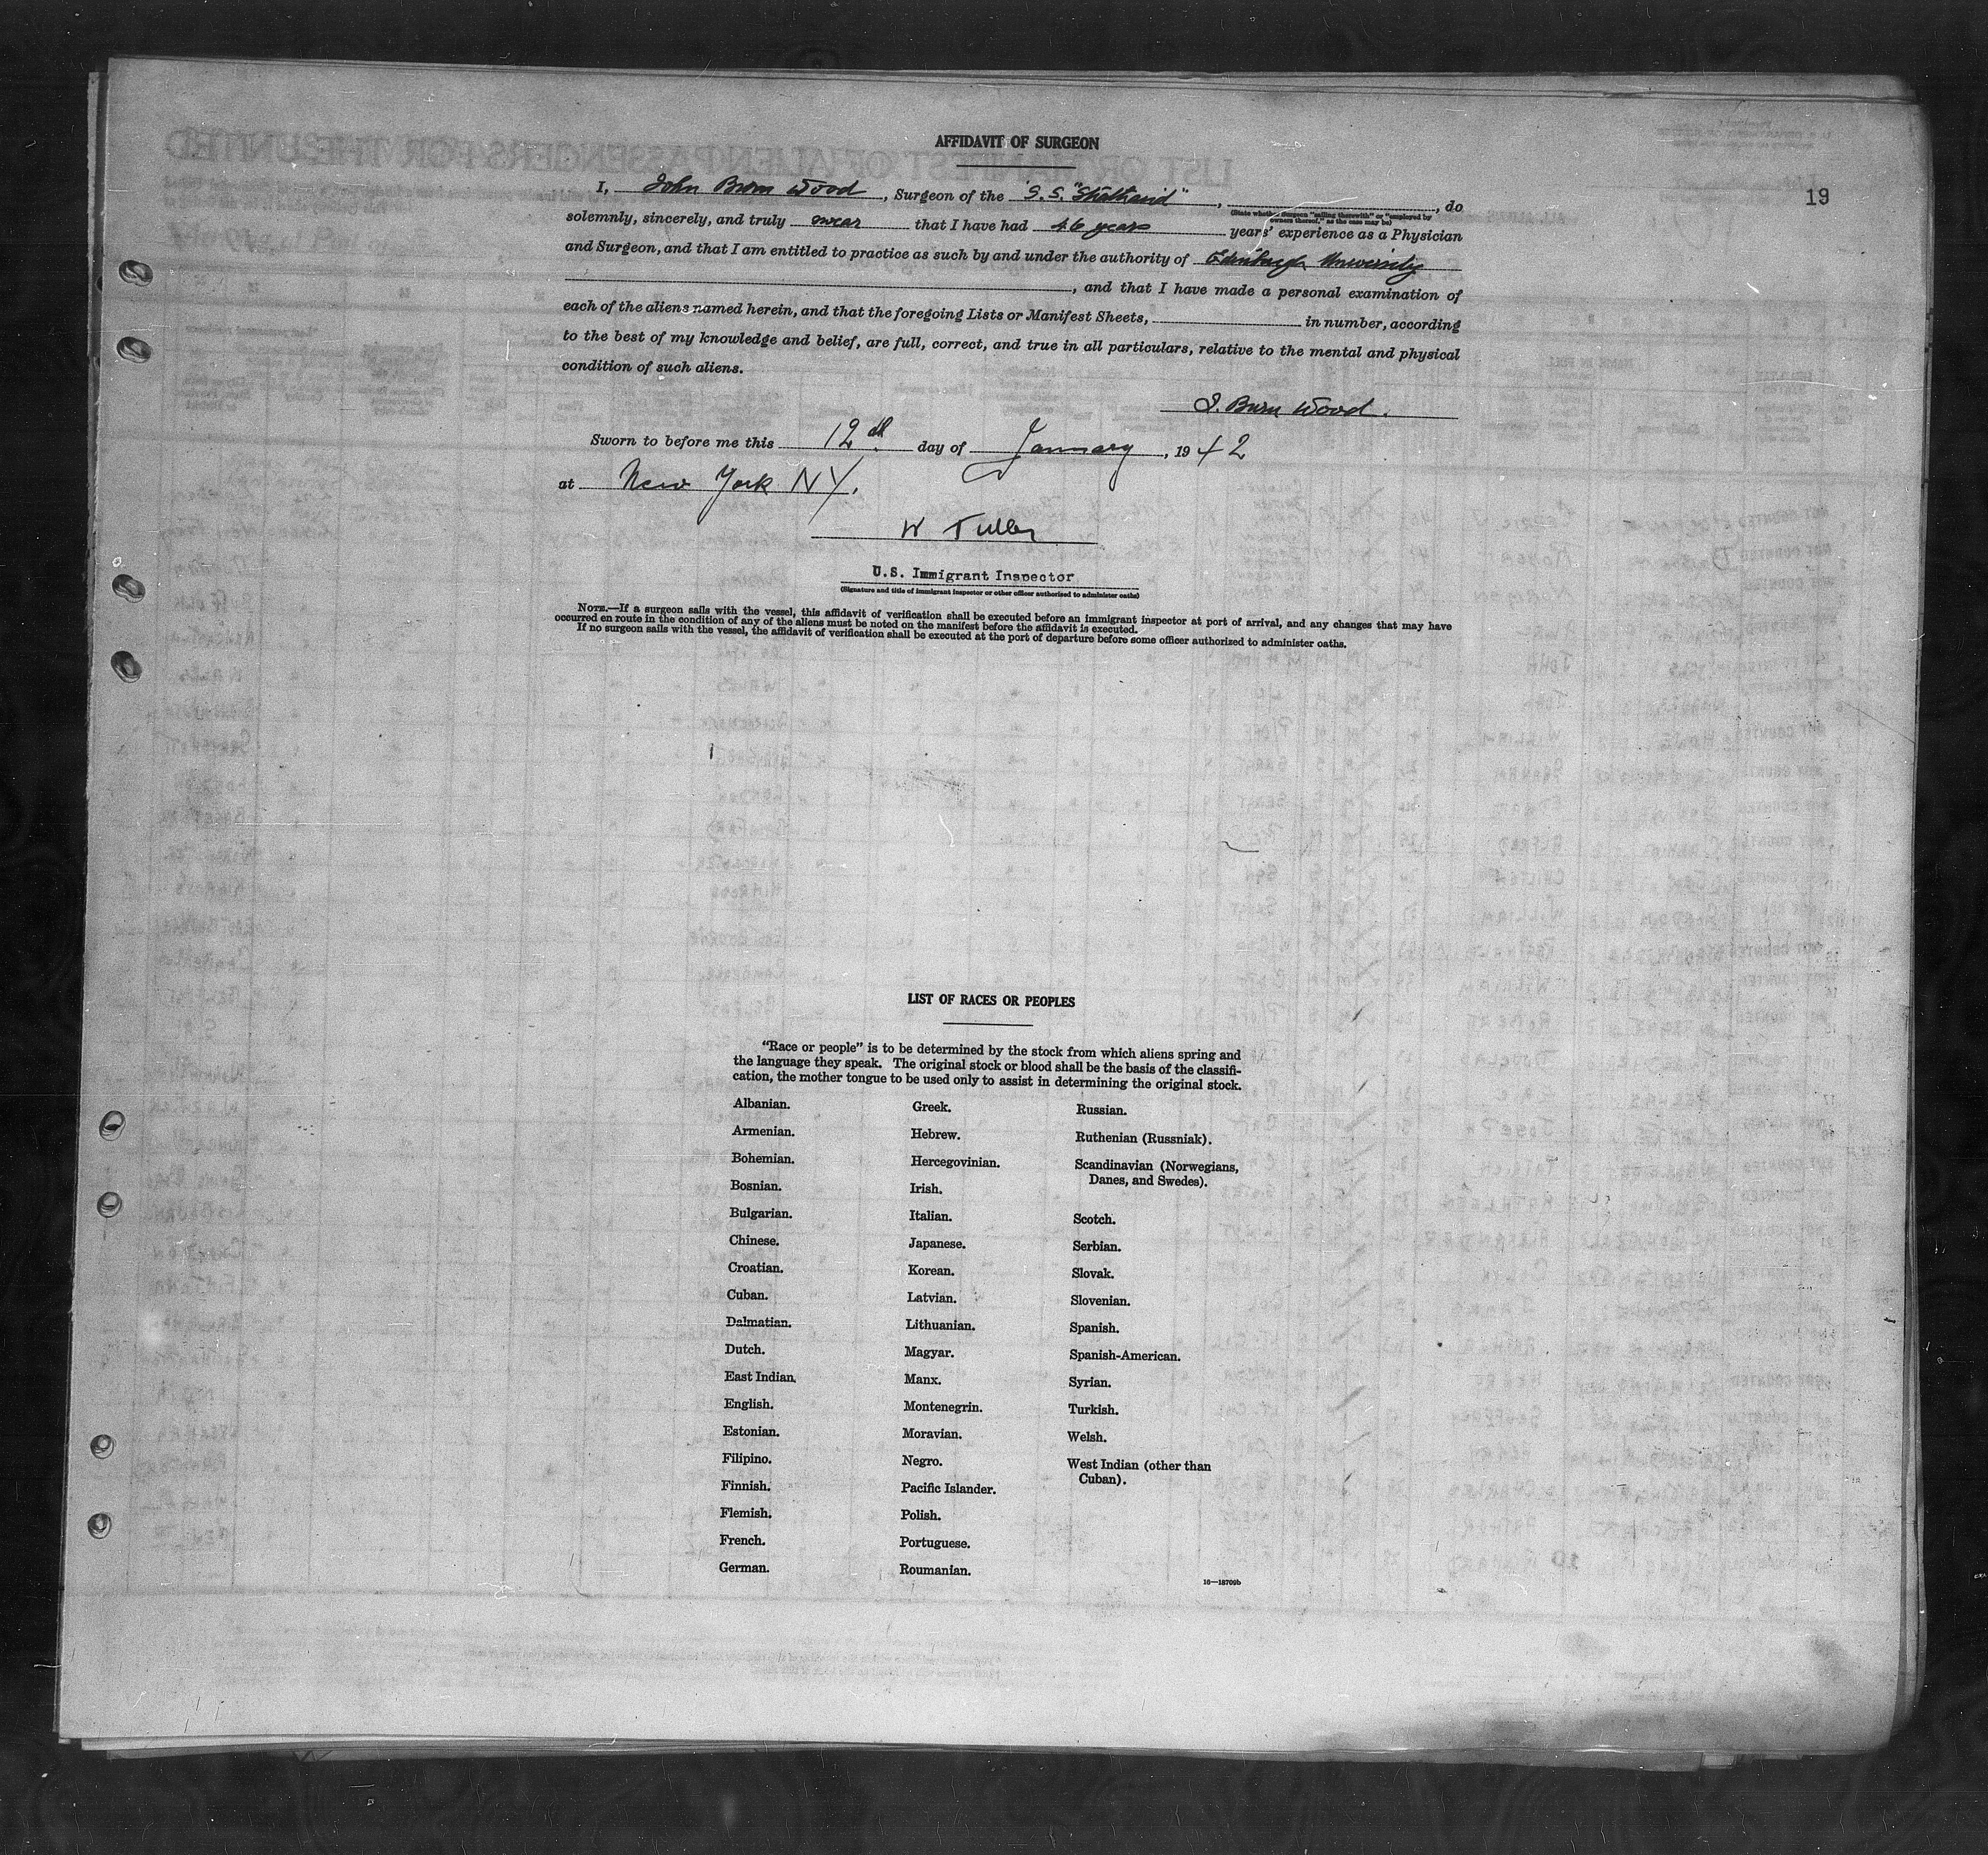 19
AFFIDAVIT OF SURGEON
I, John Burn Wood, Surgeon of the S.S. "Strathaird", , do
(State whether surgeon "sailing therewith" or "employed by owners thereof," as the case may be)
solemnly, sincerely, and truly swear that I have had 46 years years' experience as a Physician
and Surgeon, and that I am entitled to practice as such by and under the authority of Edinburgh University
, and that I have made a personal examination of
each of the aliens named herein, and that the foregoing Lists or Manifest Sheets, in number, according
to the best of my knowledge and belief, are full, correct, and true in all particulars, relative to the mental and physical
condition of such aliens.
J. Burn Wood.
Sworn to before me this 12th day of January, 1942
at New York NY.
W Tuller
U.S. Immigrant Inspector
(Signature and title of immigrant inspector or other officer authorized to administer oaths)
NOTE.—If a surgeon sails with the vessel, this affidavit of verification shall be executed before an immigrant inspector at port of arrival, and any changes that may have
occurred en route in the condition of any of the aliens must be noted on the manifest before the affidavit is executed.
If no surgeon sails with the vessel, the affidavit of verification shall be executed at the port of departure before some officer authorized to administer oaths.
LIST OF RACES OR PEOPLES
"Race or people" is to be determined by the stock from which aliens spring and
the language they speak. The original stock or blood shall be the basis of the classifi-
cation, the mother tongue to be used only to assist in determining the original stock.
Albanian.
Armenian.
Bohemian.
Bosnian.
Bulgarian.
Chinese.
Croatian.
Cuban.
Dalmatian.
Dutch.
East Indian.
English.
Estonian.
Filipino.
Finnish.
Flemish.
French.
German.
Greek.
Hebrew.
Hercegovinian.
Irish.
Italian.
Japanese.
Korean.
Latvian.
Lithuanian.
Magyar.
Manx.
Montenegrin.
Moravian.
Negro.
Pacific Islander.
Polish.
Portuguese.
Roumanian.
Russian.
Ruthenian (Russniak).
Scandinavian (Norwegians,
Danes, and Swedes).
Scotch.
Serbian.
Slovak.
Slovenian.
Spanish.
Spanish-American.
Syrian.
Turkish.
Welsh.
West Indian (other than
Cuban).
16—18709b